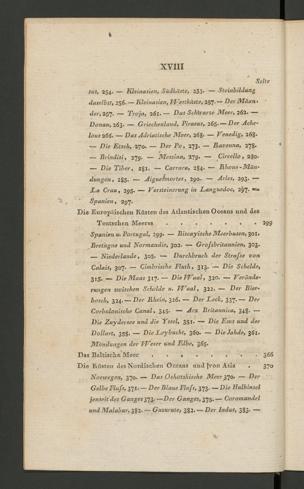 XVIII
Seite
sus, 254. — Kleinasien, Südküste, 255. — Steinbildung
daselbst, 256. — Kleinasien, Westküste, 257. — Der Mäan-
der, 257. — Troja, 261. — Das Schwarze Meer, 262. —
Donau, 263. — Griechenland, Piraeus, 265. — Der Ache-
lous 266. — Das Adriatische Meer, 268. — Venedig, 268.
— Die Etsch, 270. — Der Po, 273. — Ravenna, 278.
— Brindisi, 279. — Messina, 279. — Circello, 280.
— Die Tiber, 281. — Carrara, 284. — Rhone-Mün-
dungen, 285. — Aiguesmortes, 290. — Arles, 293. —
La Crau, 295. — Versteinerung in Languedoc, 297. —
Spanien, 297.
Die Europäischen Küsten des Atlantischen Oceans und des
Teutschen Meeres . . . . . . . 299
Spanien u. Portugal, 299. — Biscayische Meerbusen, 301.
Bretagne und Normandie, 302. — Grofsbritannien, 303.
— Niederlande, 305. — Durchbruch der Strafse von
Calais, 307. — Cimbrische Fluth, 313. — Die Schelde,
315. — Die Maas 317. — Die Waal, 320. — Verände-
rungen zwischen Schelde u. Waal, 322. — Der Bies-
bosch, 324. — Der Rhein, 326. — Der Leck, 337. — Der
Corbulonische Canal, 345. — Arx Britannica, 348. —
Die Zuydersee und die Yssel, 351. — Die Ems und der
Dollart, 355. — Die Leybucht, 360. — Die Jahde, 361.
Mündungen der Weser und Elbe, 365.
Das Baltische Meer . . . . . . . 366
Die Küsten des Nordischen Oceans und von Asia . 370
Norwegen, 370. — Das Ochotskische Meer 370. — Der
Gelbe Fluſs, 371. — Der Blaue Fluſs, 373. — Die Halbinsel
jenseit des Ganges 373. — Der Ganges, 375. — Coromandel
und Malabar, 382. — Guzurate, 382. — Der Indus, 383. —